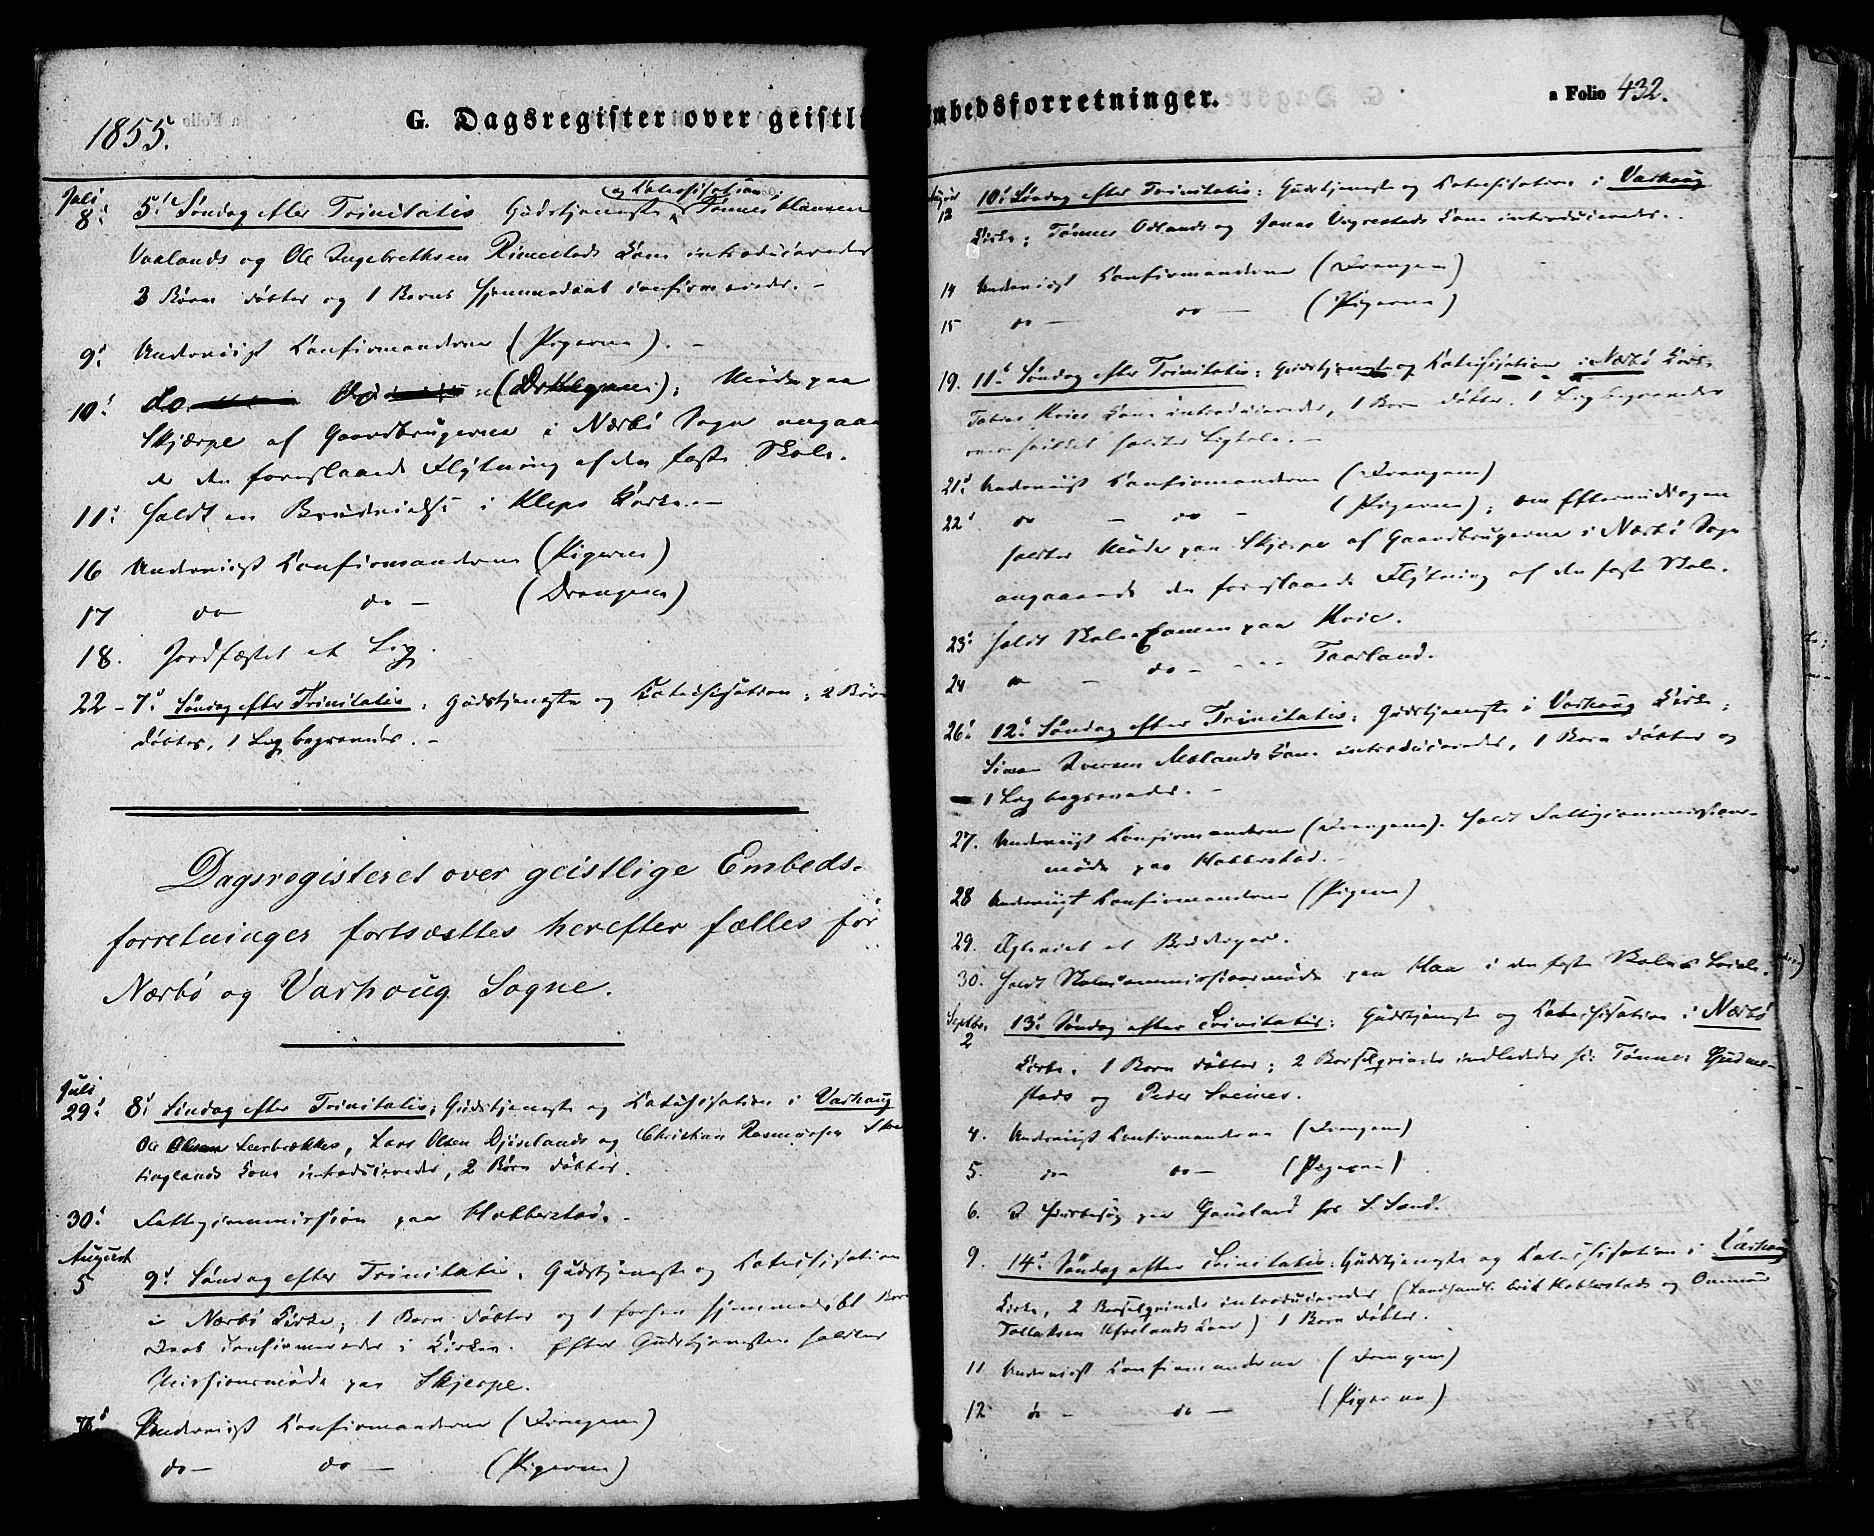 1855.
G. Dagsregister over geistli
Juli
8. 5te Søndag efter Trinitatis Gudstjeneste og Katechisation. Tønnes Hansen
Vaalands og Ole Ingebrethsen Rimestads Kone introduceredes
3 Børn døbtes og 1 Barns Hjemmedaab confirmeredes. –
9. Underviist Konfirmanderne (Pigerne). –
10. do. do (Drengene); Møde paa
Skjærpe af Gaardbrugerne i Nærbø Sogn angaaen
de den foreslaaede Flytning af den faste Skole.
11. Holdt en Brudevielse i Kleps Kirke. –
16 Underviist Konfirmanderne (Pigerne)
17 do do – (Drengene)
18. Jordfæstet et Lig.
22 – 7de Søndag efter Trinitatis, Gudstjeneste og Katechisation; 2 Børn
døbtes, 1 Lig begravedes. –
Dagsregisteret over geistlige Embeds-
forretninger fortsættes herefter fælles for
Nærbø og Varhoug Sogne.
Juli
29. 8de Søndag efter Trinitatis; Gudstjeneste og Katechisation i Varhaug
Ole Leerbrækkes, Lars Olsen Djøselands og Christian Rasmussen
tinglands Kone introduceredes, 2 Børn døbtes.
30. Fattigcommission paa Hobberstad. –
August
5 9de Søndag efter Trinitatis; Gudstjeneste og Katechisation
i Nærbø Kirke; 1 Barn døbtes og 1 forhen hjemmedøbt Barns
Daab confirmeredes i Kirken. Efter Gudstjenesten holdtes
Missionsmøde paa Skjerpe.
Underviist Konfirmanderne (Drengene)
do – do – (Pigerne)
mbedsforretninger.
a Folio 432.
August
12 10de Søndag efter Trinitatis; Gudstjeneste og Katechisation i Varhoug
Kirke; Tønnes Odlands og Jonas Vigrestads Kone introduceredes. –
14 Underviist Konfirmanderne (Drengene)
15 do – do – (Pigerne)
19. 11te Søndag efter Trinitatis; Gudstjeneste og Katechisation i Nærbø Kirke
Tobias Hvies Kone introduceredes, 1 Barn døbtes. 1 Lig begravedes
holdtes Ligtale. –
21. Underviist Konfirmanderne (Drengene)
22. do – do – (Pigerne); om Eftermiddagen
holdtes Møde paa Skjerpe af Gaardbrugerne i Nærbø Sogn
angaaende den foreslaaede Flytning af den faste Skole.
23. Holdt Skole-Examen paa Hvie.
24 do – do – – – Taarland.
26. 12te Søndag efter Trinitatis; Gudstjeneste i Varhoug Kirke;
Simon Iversen Motlands Kone introduceredes, 1 Barn døbtes og
1 Lig begravedes. –
27. Underviist Konfirmanderne (Drengene). Holdt Fattigcommissions-
møde paa Hobberstad. –
28 Underviist Konfirmanderne (Pigerne)
29. Egteviet et Brudepar.
30. Holdt Skolecommissionsmøde paa Haa i den faste Skoles Locale.
Septbr.
2 13de Søndag efter Trinitatis; Gudstjeneste og Katechisation i Nærbø
Kirke. 1 Barn døbtes; 2 Barselqvinder indlededes Tønnes Gudme-
stads og Peder
4. Underviist Konfirmanderne (Drengene)
5. do – do – (Pigerne)
6. I paa Gausland hos
9. 14de Søndag efter Trinitatis; Gudstjeneste og Katechisation i Varhoug
Kirke, 2 Barselqvinder introduceredes (Erik Hobberstads og
Tollaksen Koner) 1 Barn døbtes.
11 Underviist Konfirmanderne (Drengene)
12 do – do – (Pigerne)